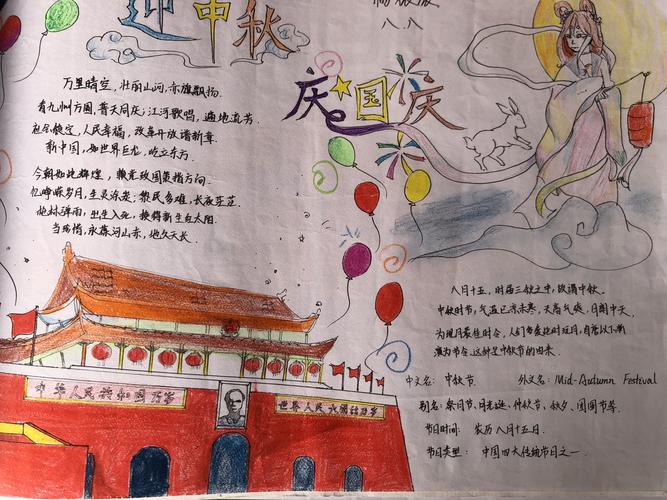 迎中秋
八.八
庆国庆
万里晴空,壮丽山河,赤旗飘扬.
看九州方圆,普天同庆;江河歌唱,遍地流芳.
稳定,人民幸福,改革开放谱新章.
新中国,如世界巨龙,屹立东方.
今朝如此辉煌,赖党政国策指方向.
忆峥嵘岁月,生灵涂炭;黎民多难,长夜茫茫.
枪林弹雨,出生入死,换得新生红太阳.
当珍惜,永葆河山赤,地久天长.
八月十五,时届三秋之中,故谓中秋.
中秋时节,气温已凉未寒,天高气爽,月朗中天,
为观月最佳时令,人们多爱此时玩月,自唐以下渐
演为节令.这种是中秋节的由来.
中文名: 中秋节. 外文名: Mid-Autumn Festival
别名: 祭日节、月光诞、仲秋节、秋夕、团圆节等.
节日时间: 农历八月十五日.
节日类型: 中国四大传统节日之一.
中华人民共和国万岁
世界人民大团结万岁